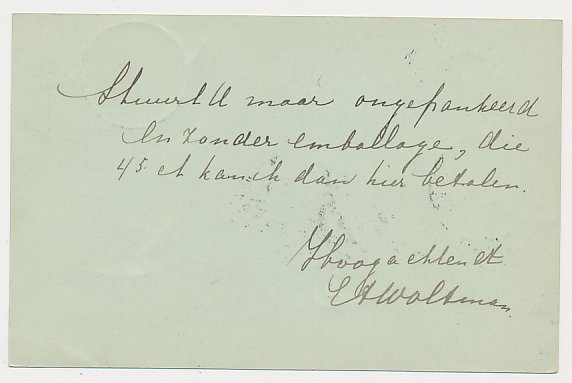 Stuurt U maar ongefrankeerd
en zonder emballage, die
45 ct kan ik dan hier betalen.
Hoogachtend
Woltman